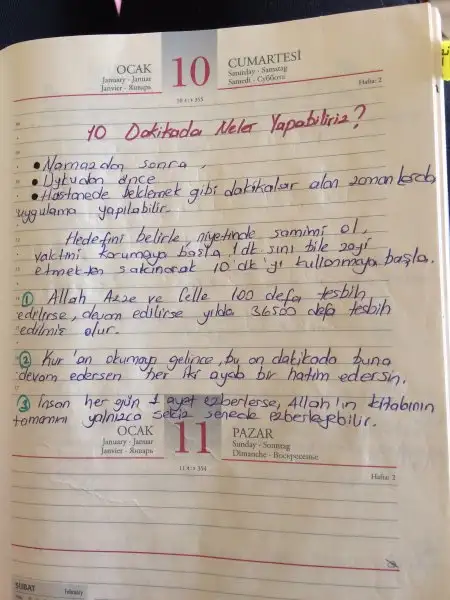 OCAK
January - Januar
Janvier - Январь
10
CUMARTESİ
Saturday - Samstag
Samedi - Суббота
Hafta: 2
10 Dakikada Neler Yapabiliriz?
• Namazdan sonra,
• Uykudan önce
• Hastanede beklemek gibi dakikalar alan zaman
uygulama yapılabilir.
Hedefini belirle, niyetinde samimi ol,
vaktini korumaya başla, 1 dk sını bile zayi
etmekten sakınarak 10 dk'yı kullanmaya başla.
① Allah Azze ve Celle 100 defa tesbih
edilirse, devam edilirse yılda 36500 defa tesbih
edilmiş olur.
② Kur'an okumaya gelince, bu on dakikada buna
devam edersen her iki ayda bir hatim edersin.
③ İnsan her gün 1 ayet ezberlerse, Allah'ın kitabının
tamamını yalnızca sekiz senede ezberleyebilir.
OCAK
January - Januar
Janvier - Январь
11
PAZAR
Sunday - Sonntag
Dimanche - Воскресенье
Hafta: 3
ŞUBAT
February